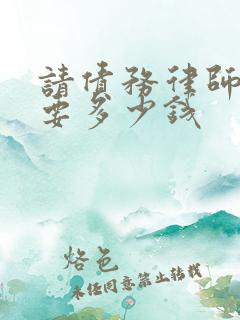 請債務律師
要多少錢
烙色
未经同意禁止转载